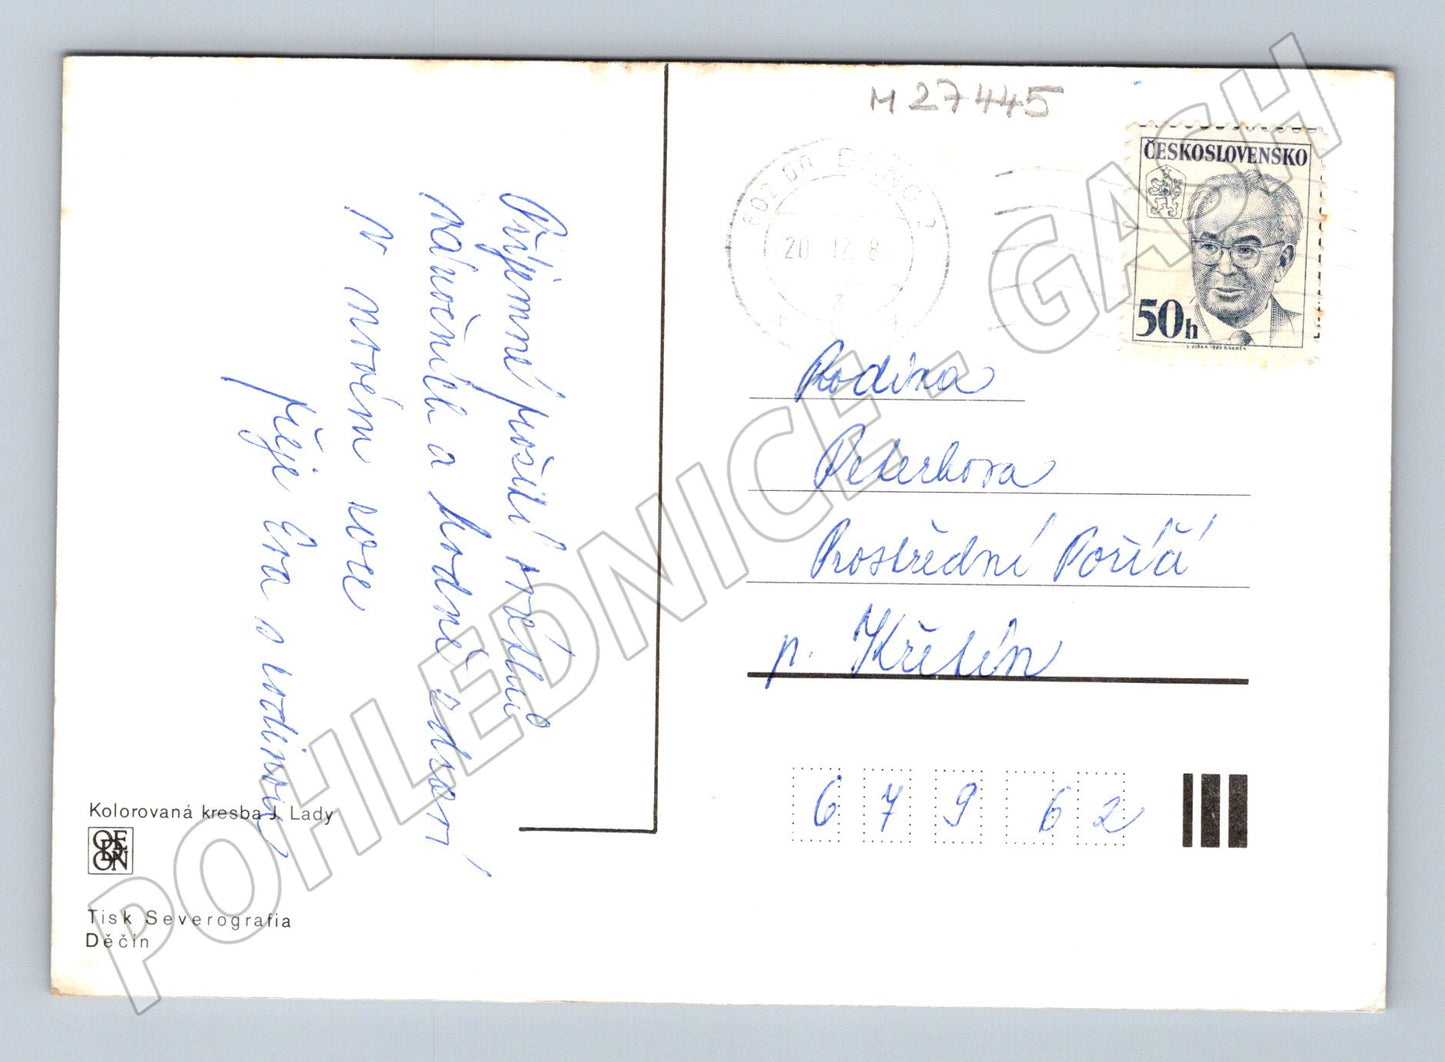 M 27445
ČESKOSLOVENSKO
50h
20. 12. 8
Příjemné prožití svátků
vánočních a hodně zdraví
v novém roce
přeje Eva s rodinou
Rodina
Peterkova
Prostřední Poříčí
p. Křetín
679 62
Kolorovaná kresba J. Lady
ODEON
Tisk Severografia
Děčín
POHLEDNICE - GASH